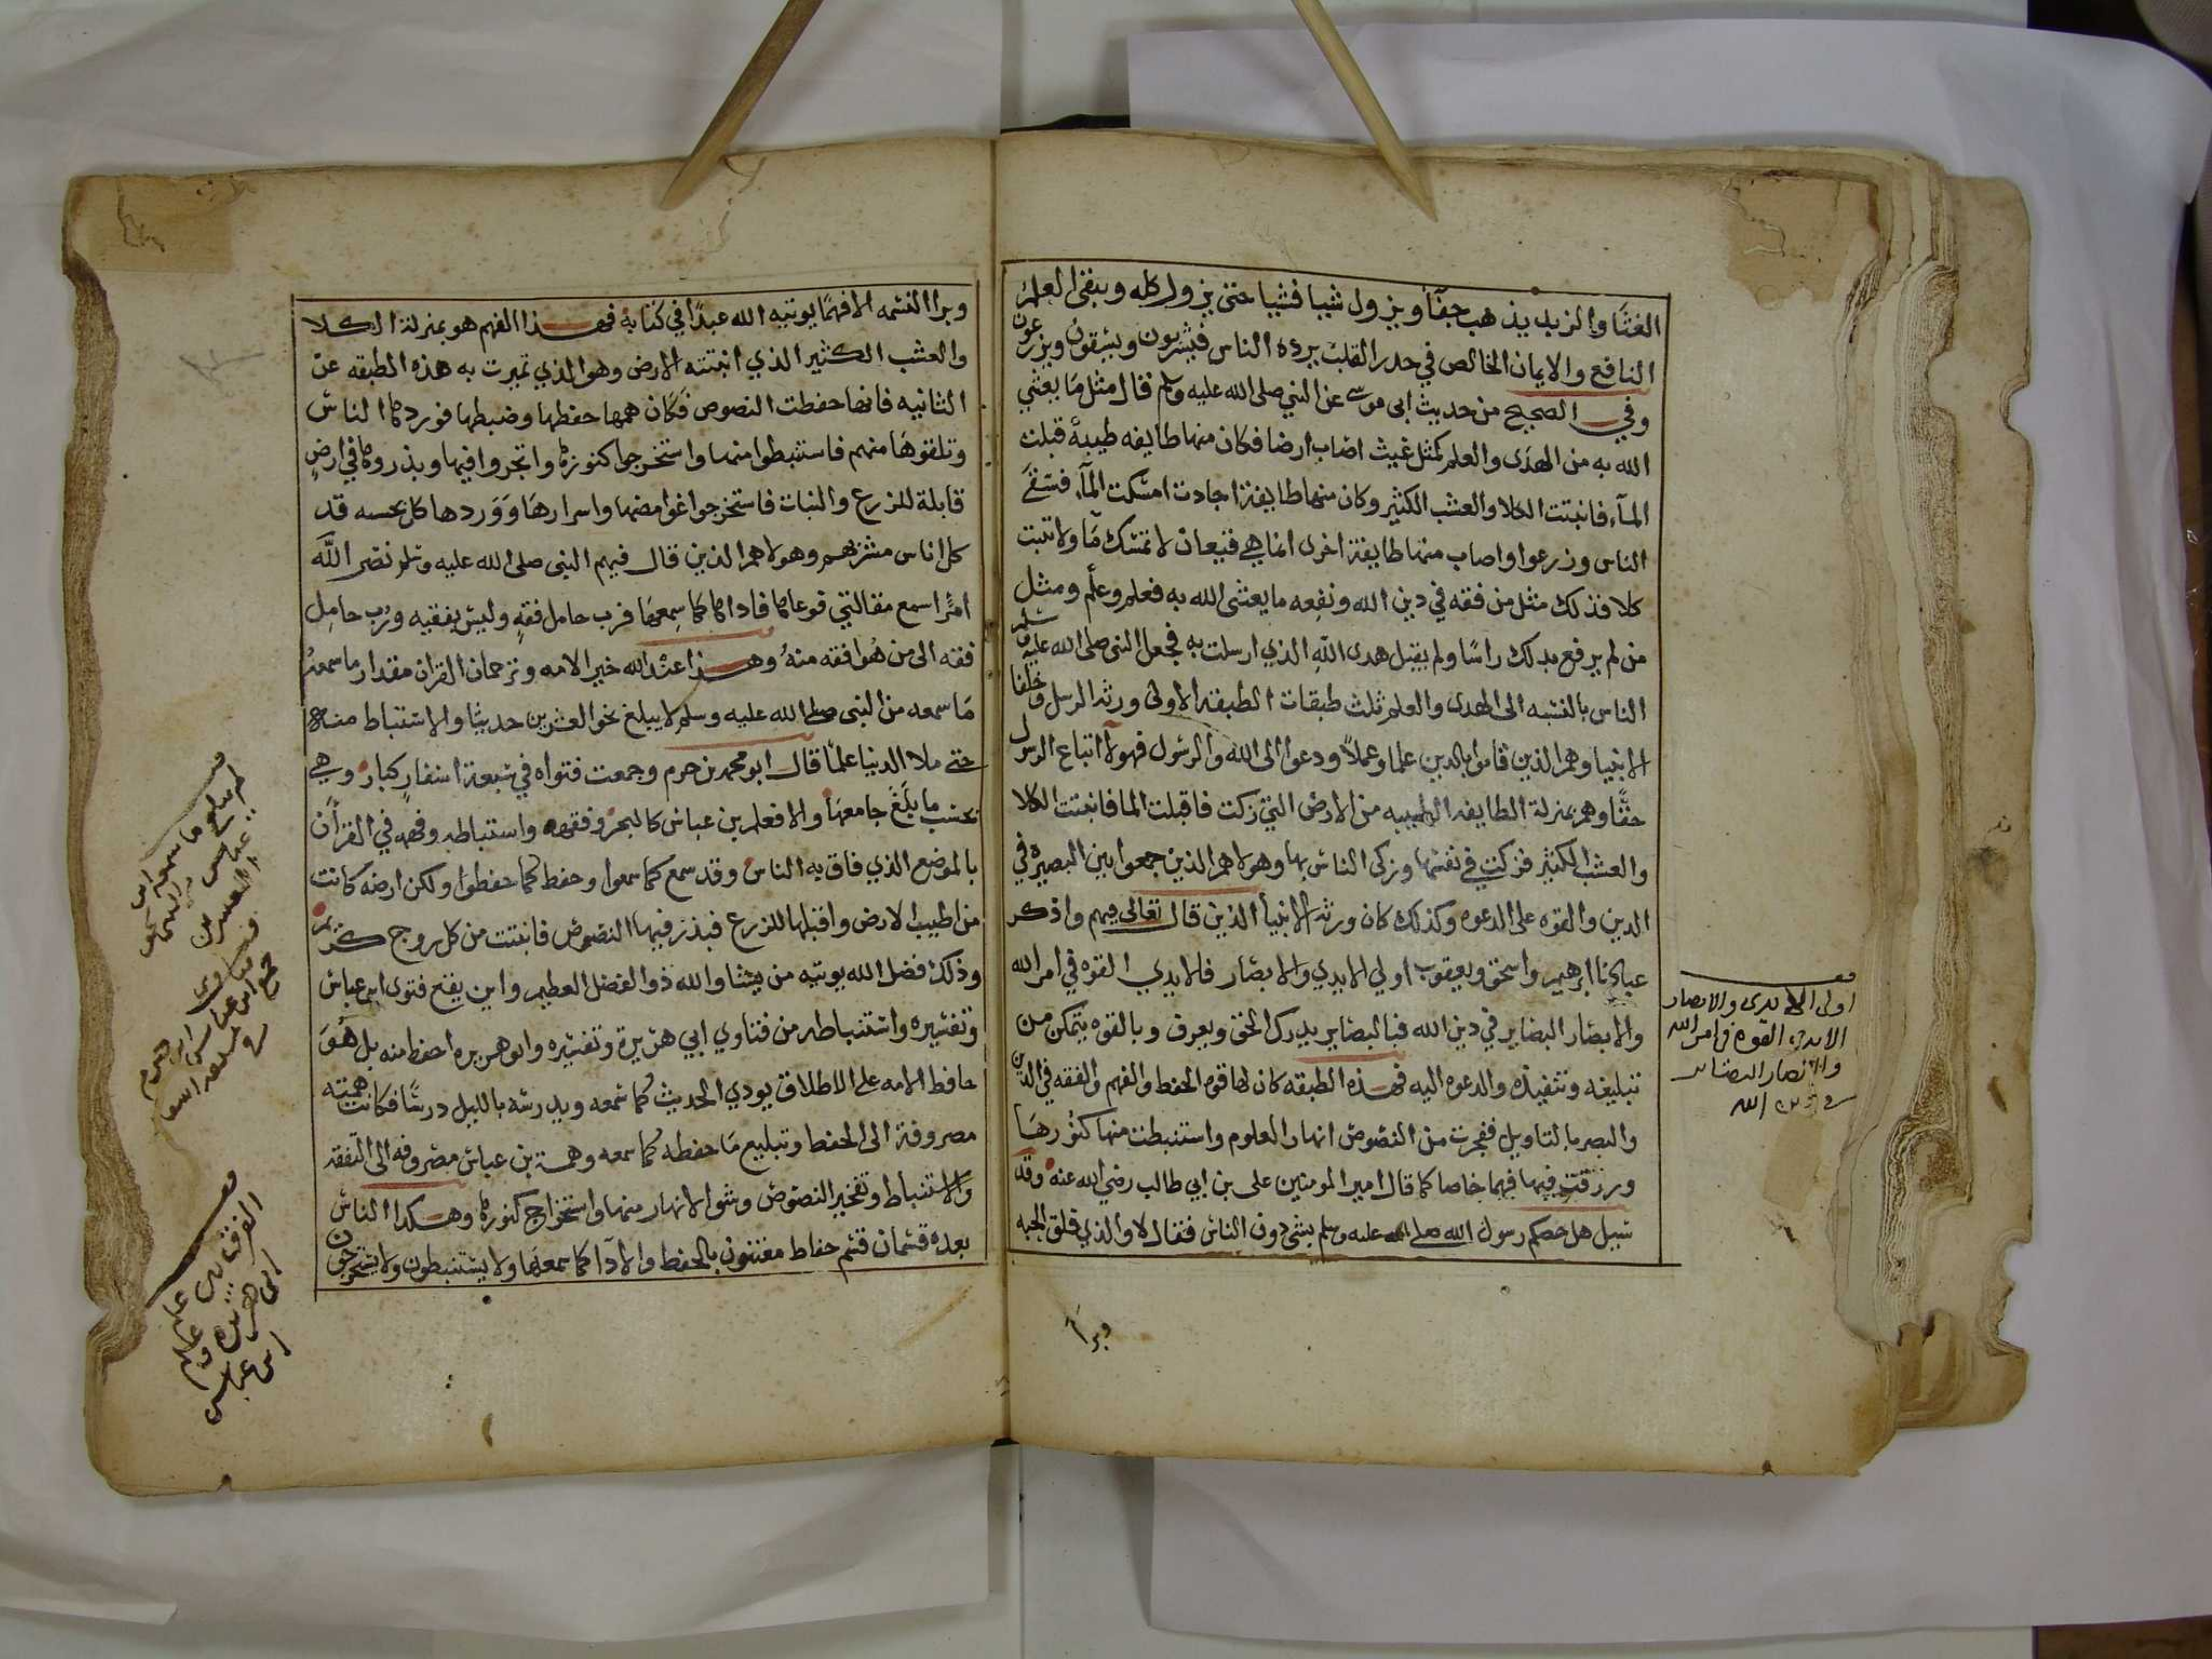 الغثا والزبد يذهب جفآً ويزول شيا فشيا حتى يزول كله ويبقى العلم
النافع والايمان الخالص في جدر القلب يرده الناس فيشربون ويسقون ويزرعون
وفي الصحيح من حديث ابى موسى عن النبي صلى الله عليه وسلم قال مثل ما بعثني
الله به من الهدى والعلم كمثل غيث اصاب ارضا فكان منها طايفه طيبة قبلت
المآء فانبتت الكلا والعشب الكثير وكان منها طايفة اجادت امسكت المآء فسقى
الناس وزرعوا واصاب منها طايفة اخرى انما هي قيعان لا تمسك مآ ولا تنبت
كلا فذلك مثل من فقه في دين الله ونفعه ما بعثنى الله به فعلم وعلم ومثل
من لم يرفع بذلك راسا ولم يقبل هدى الله الذي ارسلت به فجعل النبى صلى الله عليه وسلم
الناس بالنسبه الى الهدى والعلم ثلث طبقات الطبقة الاولى ورثة الرسل وخلفا
الانبيا وهم الذين قاموا بالدين علما وعملاً ودعوا الى الله والرسول فهولآ اتباع الرسول
حقًا وهم بمنزلة الطايفه الطيبه من الارض التي زكت فاقبلت الما فانبتت الكلا
والعشب الكثير فزكت في نفسها وزكى الناس بها وهولا هم الذين جمعوا بين البصيره في
الدين والقوه على الدعوه وكذلك كان ورثة الانبيآ الذين قال تعالى فيهم واذكر
عبادنا ابرهيم واسحق ويعقوب اولي الايدي والابصار فالايدي القوه في امر الله
والابصار البصاير في دين الله فبالبصاير يدرك الحق ويعرف وبالقوه يتمكن من
تبليغه وتنفيذه والدعوه اليه فهذه الطبقه كان لها قوه الحفظ والفهم والفقه في الدين
والبصر بالتاويل ففجرت من النصوص انهار العلوم واستنبطت منها كنوزها
ورزقت فيها فهما خاصا كما قال امير المومنين على بن ابي طالب رضي الله عنه وقد
سيل هل خصكم رسول الله صلى الله عليه وسلم بشى دون الناس فقال لا والذي فلق الحبه
وبرا
اولى الايدى والابصار
الايدى القوه فى امر الله
والابصار البصاير
فى دين الله
وبرا النسمه الا فهمًا يوتيه الله عبدًا في كتابه فهذا الفهم هو بمنزلة الكلا
والعشب الكثير الذي انبتته الارض وهو الذي تميزت به هذه الطبقه عن
الثانيه فانها حفظت النصوص فكان همها حفظها وضبطها فوردها الناس
وتلقوها منهم فاستنبطوا منها واستخرجوا كنوزها واتجروا فيها وبذروها في ارض
قابلة للزرع والنبات فاستخرجوا غوامضها واسرارها ووردها كل بحسبه قد
كل اناس مشربهم وهولا هم الذين قال فيهم النبى صلى الله عليه وسلم نضر الله
امرًا سمع مقالتي فوعاها فاداها كما سمعها فرب حامل فقه وليس بفقيه ورب حامل
فقه الى من هو افقه منه وهذا عبد الله خير الامه وترجمان القران مقدار ما سمعه
ما سمعه من النبى صلى الله عليه وسلم لا يبلغ نحو العشرين حديثا والاستنباط منه
حتى ملا الدنيا علمًا قال ابو محمد بن حزم وجمعت فتواه في سبعة اسفار كبار وهي
بحسب ما بلغ جامعها والا فعلم بن عباس كالبحر وفقهه واستنباطه وفهمه في القرآن
بالموضع الذي فاق به الناس وقد سمع كما سمعوا وحفظ كما حفظوا ولكن ارضه كانت
من اطيب الارض واقبلها للزرع فبذر فيها النصوص فانبتت من كل زوج كريم
وذلك فضل الله يوتيه من يشا والله ذو الفضل العظيم واين يقع فتوى ابن عباس
وتفسيره واستنباطه من فتاوي ابي هريرة وتفسيره وابو هريره احفظ منه بل هو
حافظ الامه على الاطلاق يودي الحديث كما سمعه ويدرسه بالليل درسا فكانت همته
مصروفة الى الحفظ وتبليغ ما حفظه كما سمعه وهمة بن عباس مصروفه الى التفقه
والاستنباط وتفجير النصوص وشق الانهار منها واستخراج كنوزها وهكذا الناس
بعده قسمان قسم حفاظ معتنون بالحفظ والادا كما سمعها ولا يستنبطون ولا يستخرجون
لم يبلغ ما سمعه ابن
عباس
العشرين
الفرق بين علم
ابى هريره وعلم
ابن عباس